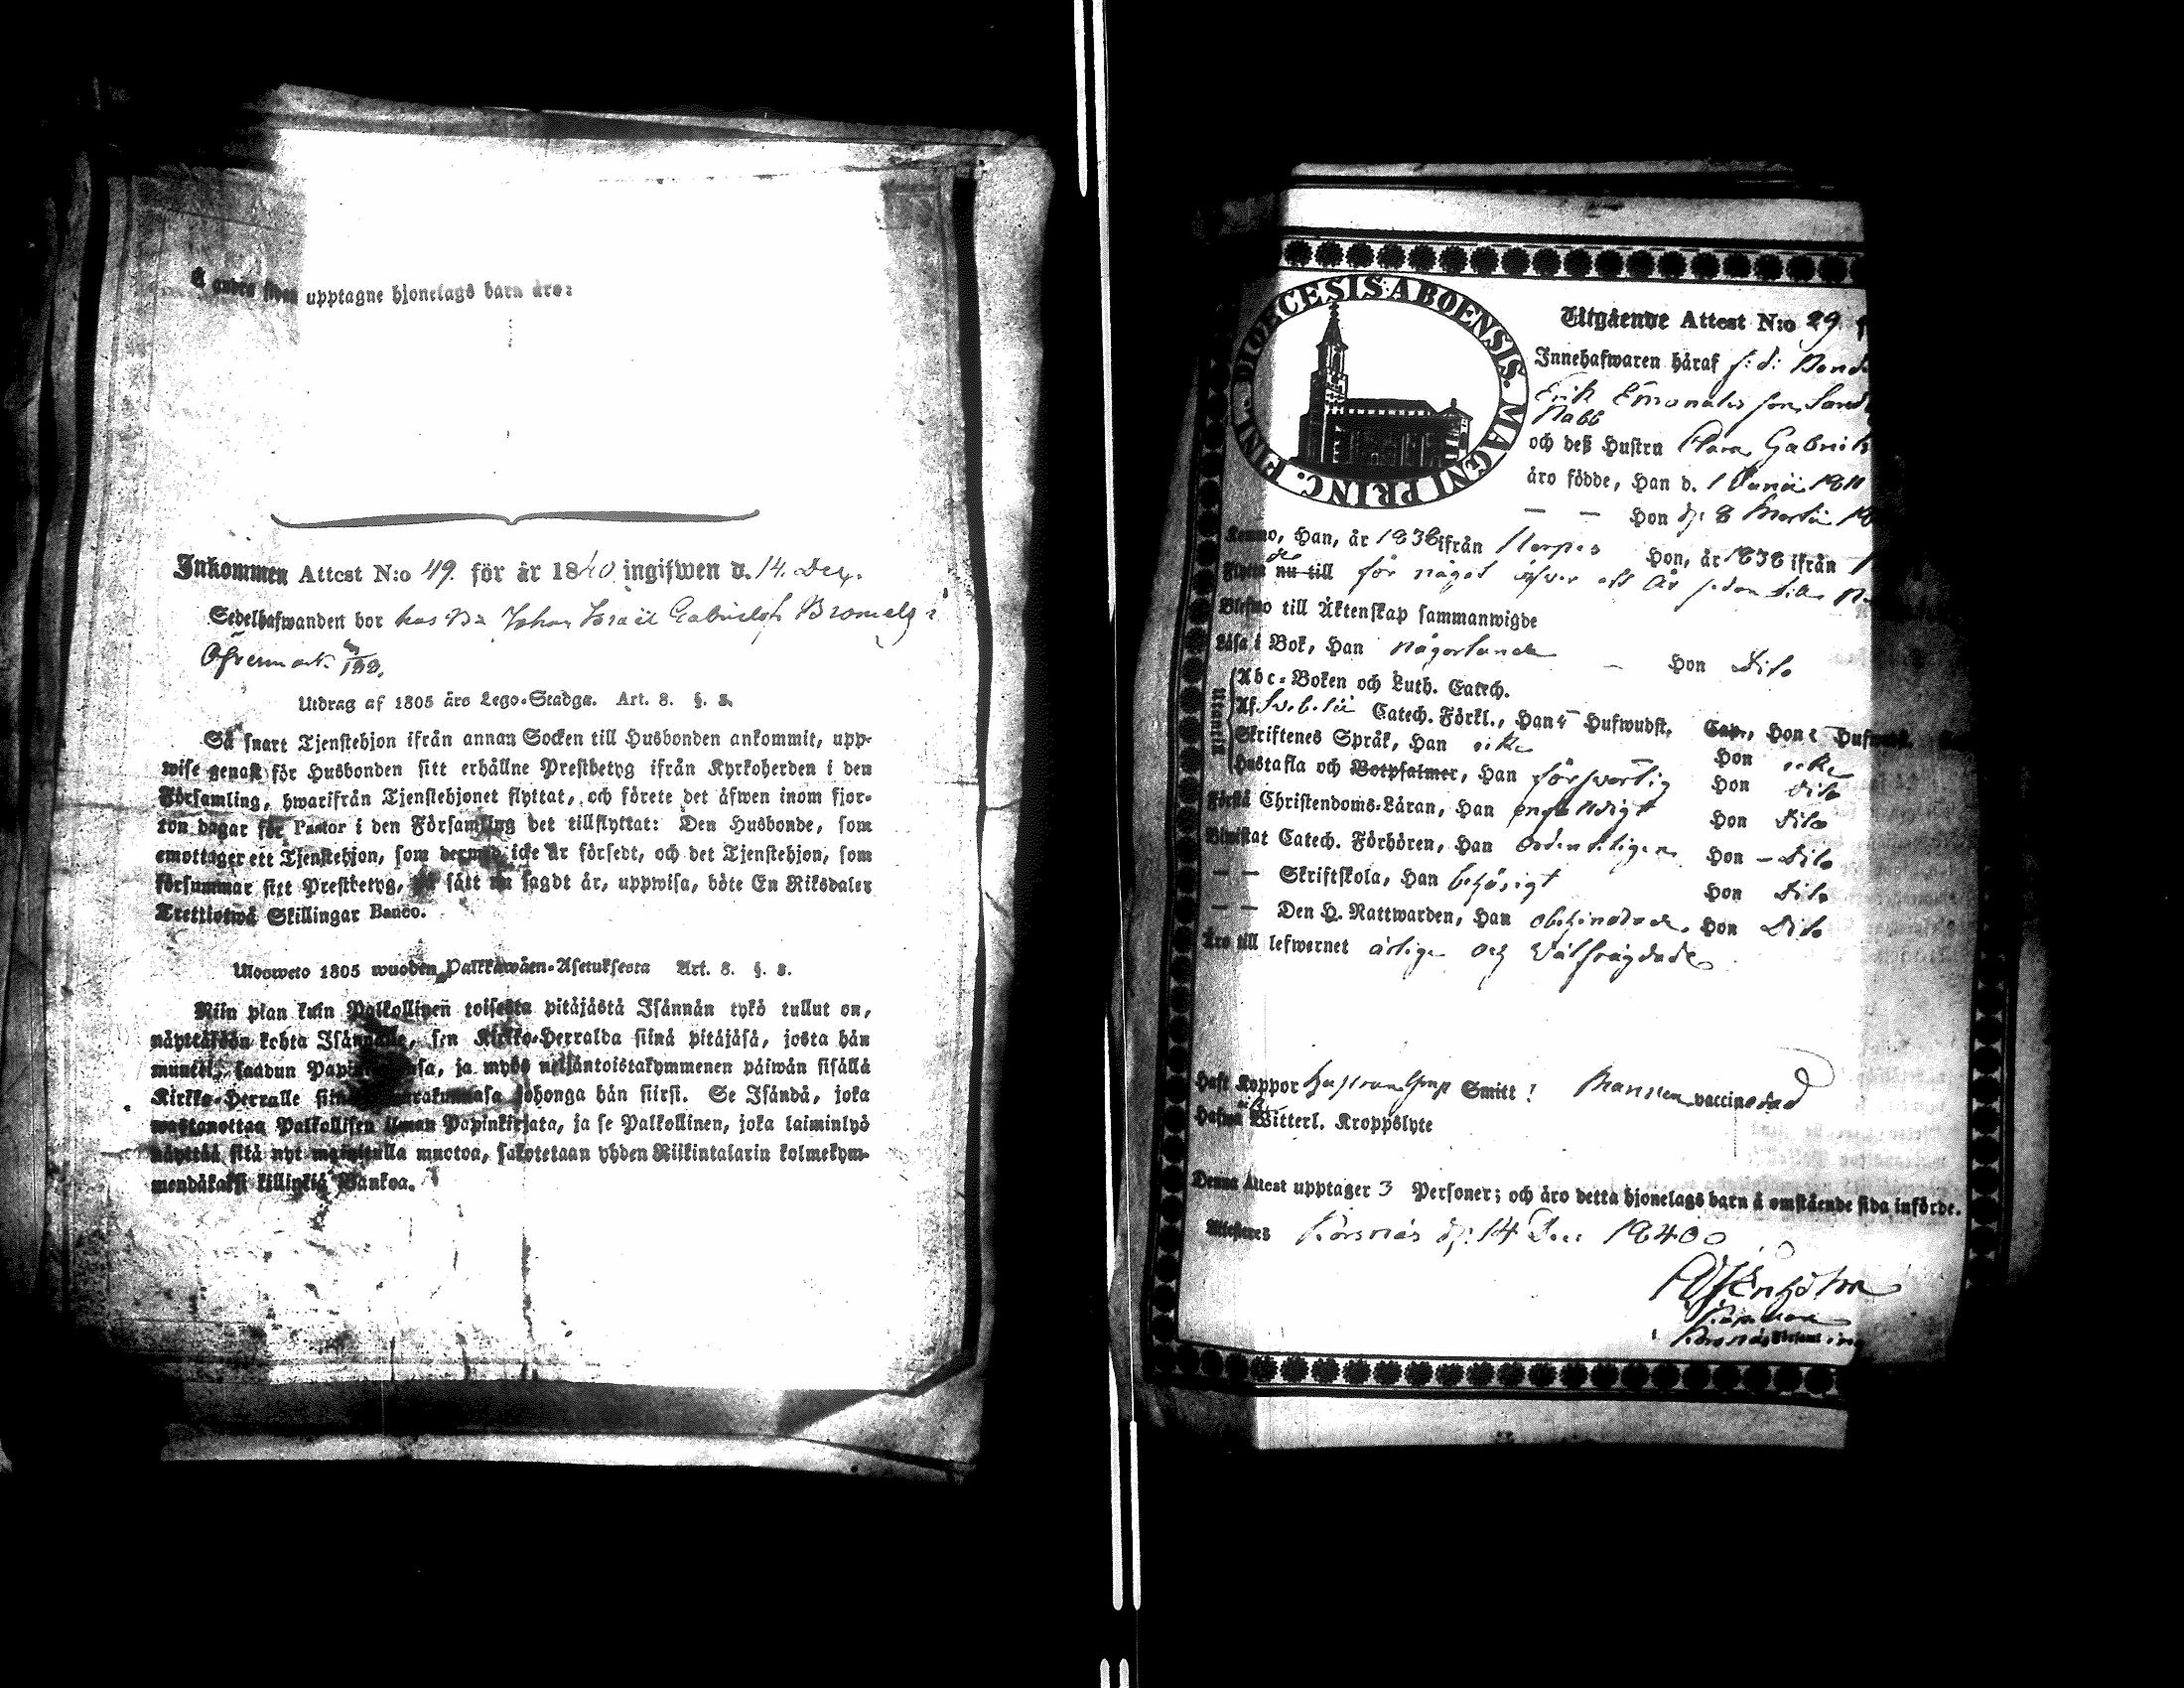 Å andra sidan upptagne hjonelags barn äro:
Inkommen Attest N:o 49. för år 1840 ingifwen d. 14. Dec.
Sedelhafwanden bor hos Bd Johan Israël Gabrielss Bromels i
Öfvermark 198.
Utdrag af 1805 års Lego-Stadga. Art. 8. §. 2.
Så snart Tjenstehjon ifrån annan Socken till Husbonden ankommit, upp-
wise genast för Husbonden sitt erhållne Prestbetyg ifrån Kyrkoherden i den
Församling, hwarifrån Tjenstehjonet flyttat, och förete det äfwen inom fjor-
ton dagar för Pastor i den Församling det tillflyttat: Den Husbonde, som
emottager ett Tjenstehjon, som dermed icke är försedt, och det Tjenstehjon, som
försummar sitt Prestbetyg, på sätt nu sagdt är, uppwisa, böte En Riksdaler
Trettiotwå Skillingar Banco.
Ulosweto 1805 wuoden Palkkawäen-Asetuksesta Art. 8. §. 2.
Niin pian kuin Palkollinen toisesta pitäjästä Isännän tykö tullut on,
näyttäköön kohta Isännälle, sen Kirkko-Herralda siinä pitäjäsä, josta hän
muutti, saadun Papinkirjansa, ja myös neljäntoistakymmenen päiwän sisällä
Kirkko-Herralle siinä Seurakunnasa johonga hän siirsi. Se Isändä, joka
wastanottaa Palkollisen ilman Papinkirjata, ja se Palkollinen, joka laiminlyö
näyttää sitä nyt mainitulla muotoa, sakotetaan yhden Riikintalarin kolmekym-
mendäkaksi killinkiä Bankoa.
DIOECESIS ABOENSIS. MAGNI PRINC. FINL.
Utgående Attest N:o 29.
Innehafwaren häraf f: d: Bond
Erik Emanuels son Sand
Nabb
och deß Hustru Clara Gabriels
äro födde, Han d. 1 Junii 1811
— — Hon d. 8 Martii 18
Kommo, Han, år 1838 ifrån Nerpes Hon, år 1838 ifrån
Flytta nu till för något öfver ett År sedan till
Blefwo till Äktenskap sammanwigde
Läsa i Bok, Han någorlunda — Hon Dito
Utantill
Abc-Boken och Luth. Catech.
Af Svebilii Catech. Förkl., Han 5 Hufwudst. Cap., Hon Hufwudst.
Skriftenes Språk, Han icke Hon icke
Hustafla och Botpsalmer, Han försvarlig Hon Dito
Förstå Christendoms-Läran, Han enfaldigt Hon Dito
Biwistat Catech. Förhören, Han ordentligen Hon — Dito
— — Skriftskola, Han behörigt Hon Dito
— — Den H. Nattwarden, Han obehindrade, Hon Dito
Äro till lefwernet ärlige och Välfrägdade
Haft Koppor Hustrun Smitt! Mannen vaccinerad
Hafwa Witterl. Kroppslyte
Denna Attest upptager 3 Personer; och äro detta hjonelags barn å omstående sida införde.
Attesteres Korsnäs d. 14 Dec 1840
Korsnäs Församling